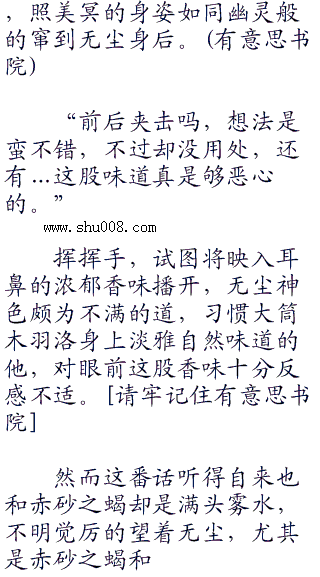 ，照美冥的身姿如同幽灵般
的窜到无尘身后。(有意思书
院)
“前后夹击吗，想法是
蛮不错，不过却没用处，还
有…这股味道真是够恶心
的。”
www.shu008.com
挥挥手，试图将映入耳
鼻的浓郁香味播开，无尘神
色颇为不满的道，习惯大筒
木羽洛身上淡雅自然味道的
他，对眼前这股香味十分反
感不适。[请牢记住有意思书
院]
然而这番话听得自来也
和赤砂之蝎却是满头雾水，
不明觉厉的望着无尘，尤其
是赤砂之蝎和